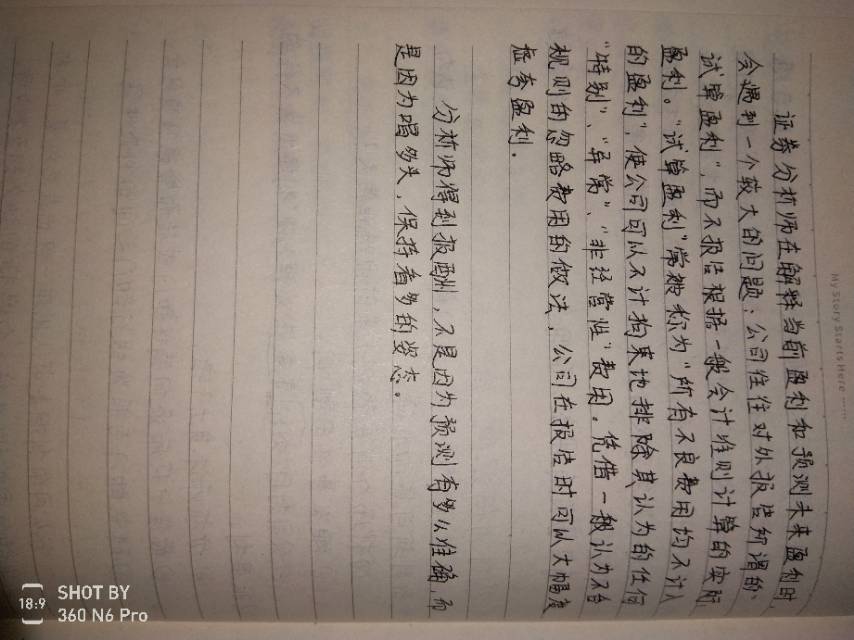 My Story Starts Here
证券分析师在解释当前盈利和预测未来盈利时,
会遇到一个较大的问题:公司往往对外报告所谓的"
试算盈利",而不报告根据一般会计准则计算的实际
盈利。"试算盈利"常被称为"所有不良费用均不计入
的盈利",使公司可以不计拘束地排除其认为的任何
"特别"、"异常"、"非经营性"费用。凭借一般认为不合
规则的忽略费用的做法,公司在报告时可以大幅度
抬高盈利.
分析师得到报酬,不是因为预测有多么准确,而
是因为唱多头,保持看多的姿态。
18:9
SHOT BY
360 N6 Pro